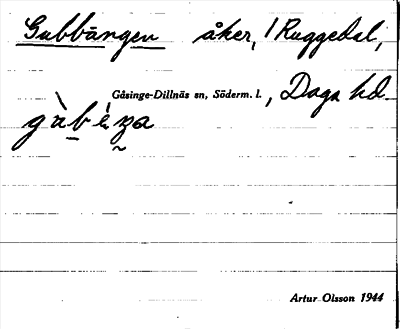 Gubbängen åker, i Ruggedal,
Gåsinge-Dillnäs sn, Söderm. l., Daga hd
gàbéŋa
Artur Olsson 1944